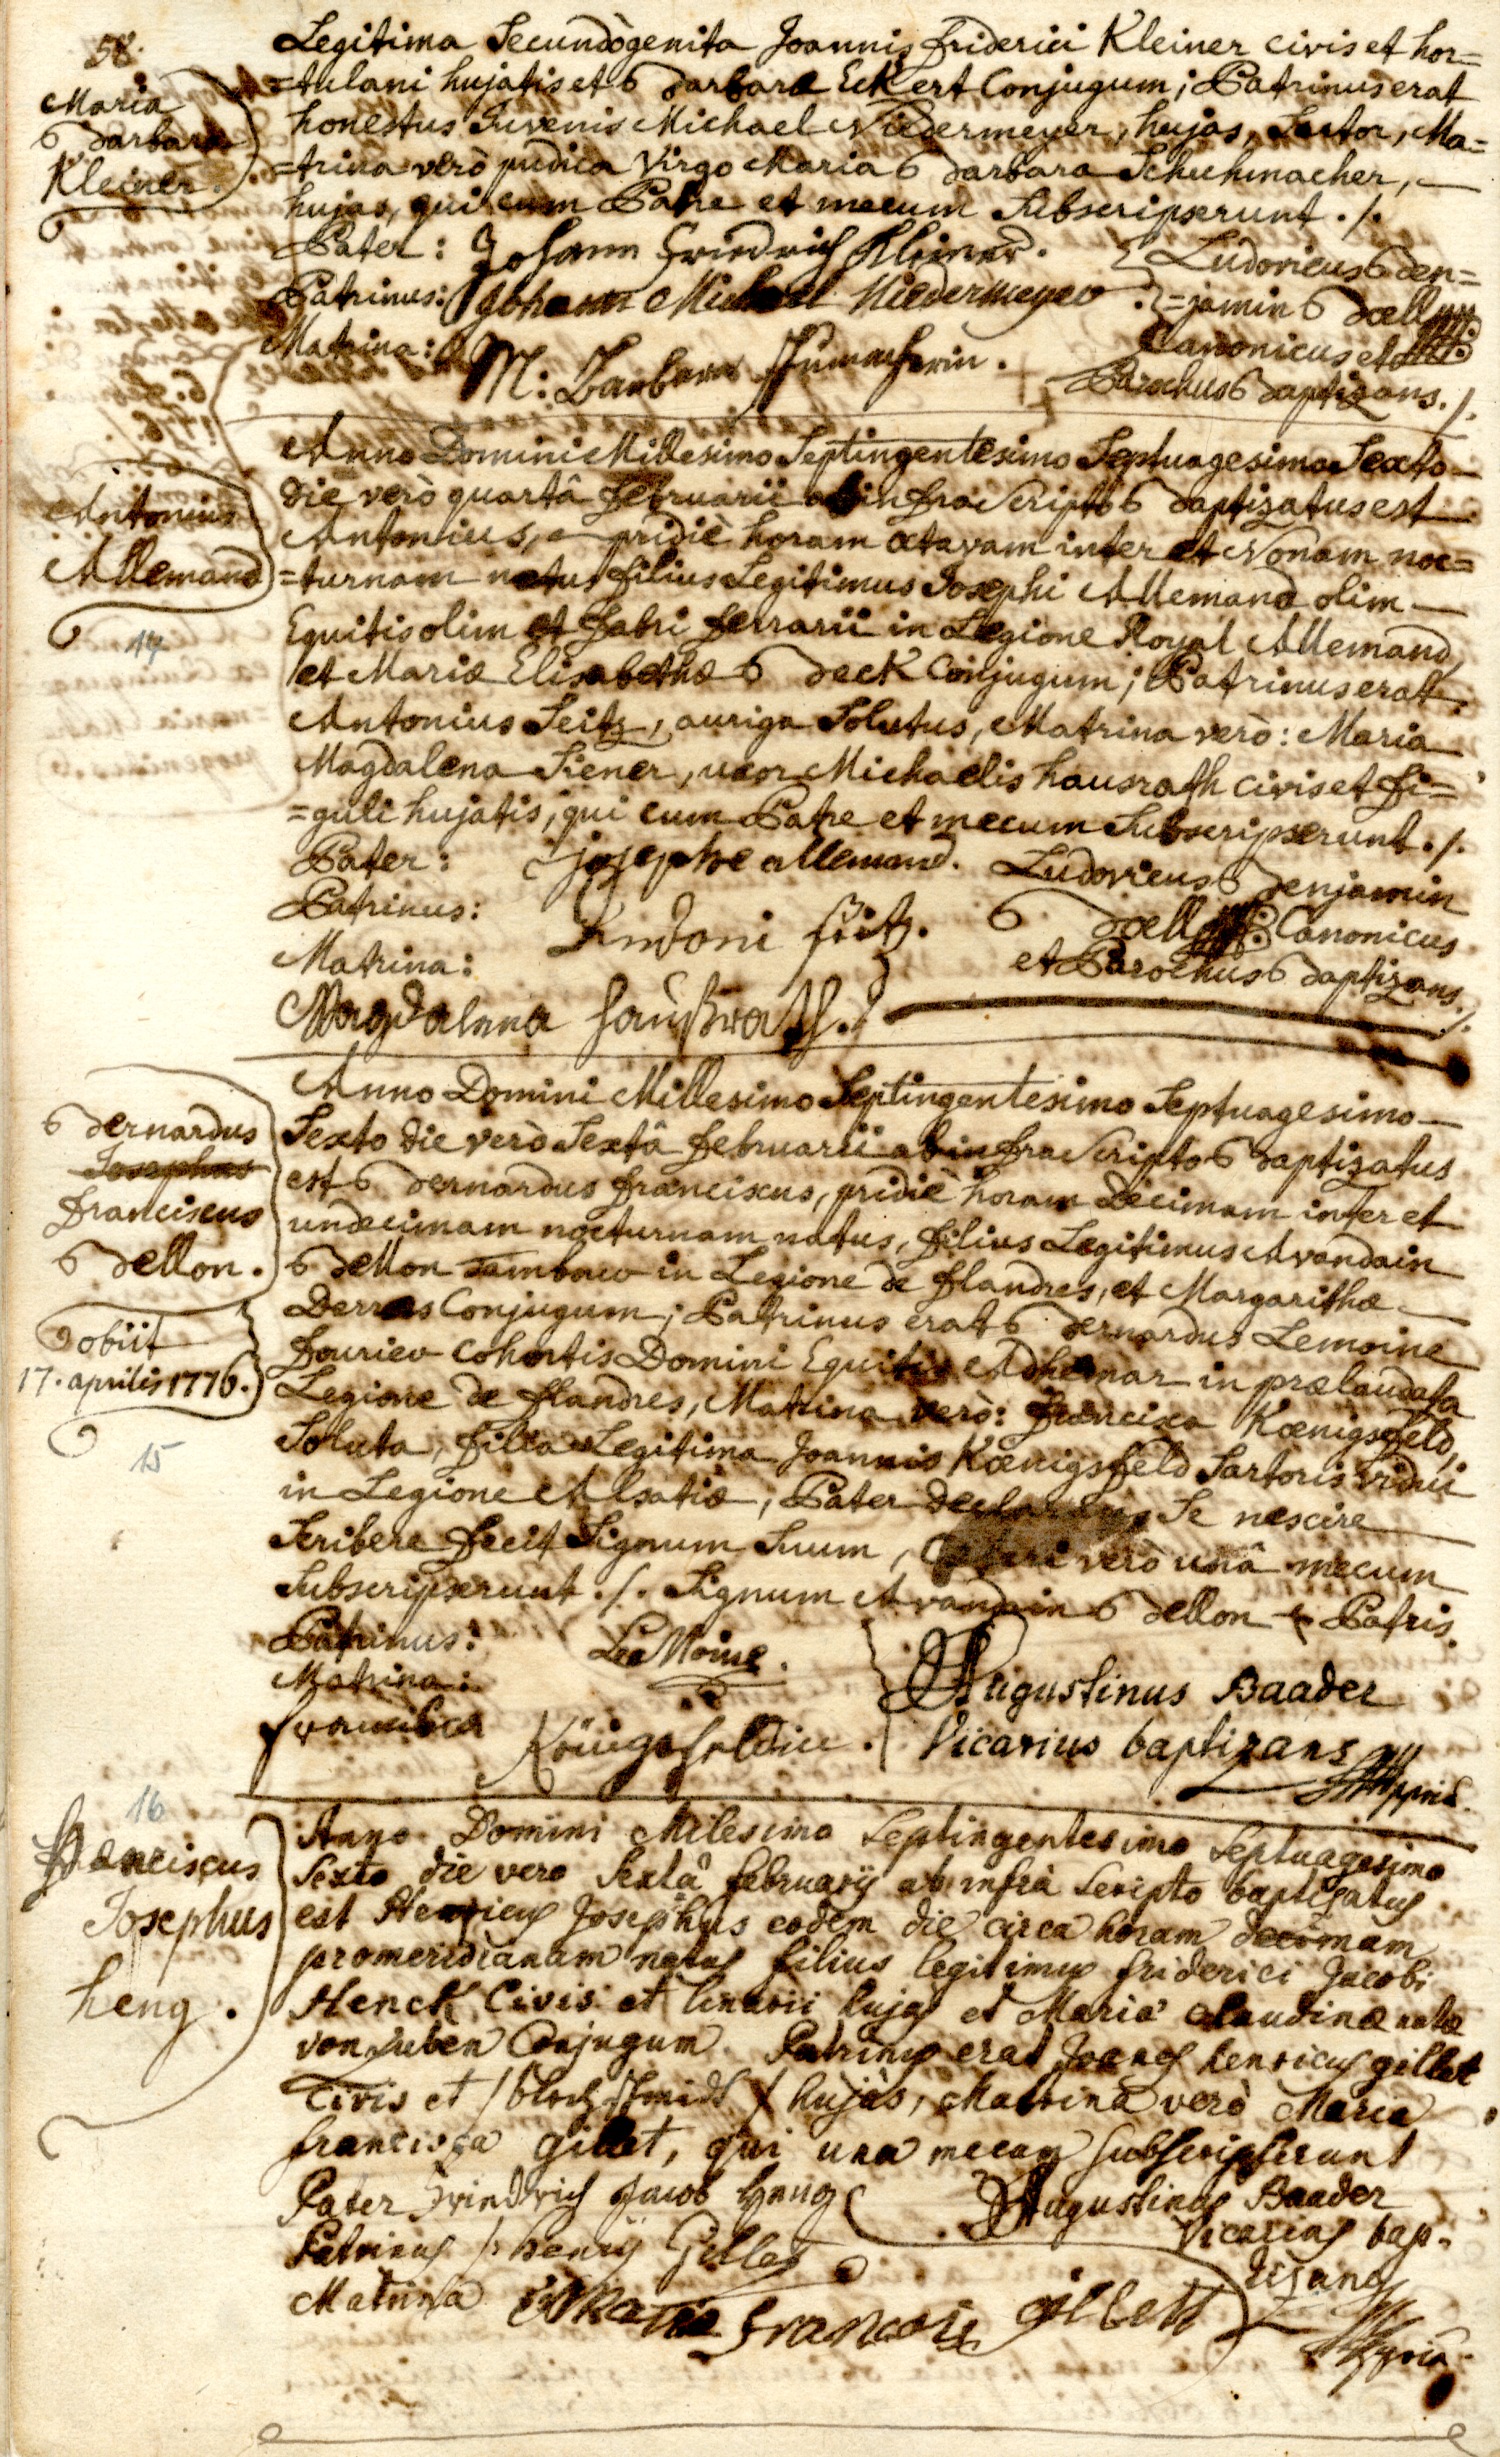 58.
Maria
Barbara
Kleiner.
Legitima Secundògenita Joannis friderici Kleiner civis et hor=
=tulani hujatis et Barbaræ Eckert Conjugum; Patrinus erat
honestus Juvenis Michael Niedermeyer, hujas, Sartor, Ma=
=trina verò pudica Virgo Maria Barbara Schuhmacher,
hujas, qui cum Patre et mecum Subscripserunt ./.
Pater: Johann Friedrich Kleiner.
Patrinus: Johann Michael Niedermeyer.
Matrina: M: Barbara Schumacherin.
Ludovicus Ben=
=jamin Boell
Canonicus et
Parochus Baptizans ./.
Antonius
Allemand
14
Anno Domini Millesimo Septingentesimo Septuagesimo Sexto
die verò quartâ februarii ab infra Scripto Baptizatus est
Antonius, pridiè horam octavam inter et Nonam noc=
=turnam natus filius Legitimus Josephi Allemand olim
Equitis olim et fabri ferrarii in Legione Royal Allemand,
et Mariæ Elisabethæ Beck Conjugum; Patrinus erat
Antonius Seitz, auriga Solutus, Matrina verò: Maria
Magdalena Siener, uxor Michaelis hausrath civis et fi=
=guli hujatis, qui cum Patre et mecum Subscripserunt ./.
Pater: josephe allemand.
Patrinus: Andoni seitz.
Matrina:
Magdalena haußrath.
Ludovicus Benjamin
Boell Canonicus
et Parochus Baptizans ./.
Bernardus
Josephus
franciscus
Bellon.
obiit
17. aprilis 1776.
15
Anno Domini Millesimo Septingentesimo Septuagesimo
Sexto die verò Sextâ februarii ab infra Scripto Baptizatus
est Bernardus franciscus, pridiè horam decimam inter et
undecimam nocturnam natus, filius Legitimus Avandain
Bellon Tambour in Legione de flandres, et Margarithæ
Derras Conjugum; Patrinus erat Bernardus Lemoine
fourier Cohortis Domini Equitis Adhemar in prælaudata
Legione de flandres, Matrina verò: francisca Kœnigsfeld,
Soluta, filia Legitima Joannis Kœnigsfeld Sartoris vidui
in Legione Alsatiæ, Pater declarans Se nescire
Scribere fecit Signum Suum, Cæteri verò unâ mecum
Subscripserunt ./. Signum Avandain Bellon + Patris.
Patrinus: Le Moine.
Matrina:
francisca Königsfeldin.
Augustinus Baader
Vicarius baptizans
16
franciscus
Josephus
heng.
Anno Domini Milesimo Septingentesimo Septuagesimo
Sexto die vero Sextâ february ab infrà Scripto baptizatus
est Henricus Josephus eodem die circa horam decimam
promeridianam natus filius legitimus friderici Jacobi
Henck Civis et linarii hujas et Mariæ Claudinæ natæ
von Luben Conjugum. Patrinus erat Joanes henricus gillet
Civis et / / hujàs, Matrina verò Maria
francisca gillet, qui una mecum subscripserunt
Pater Friedrich Jacob
Patrinus henry Gillet
Matrina Maria francois gillett
Augustinus Baader
Vicarius bap-
tizans